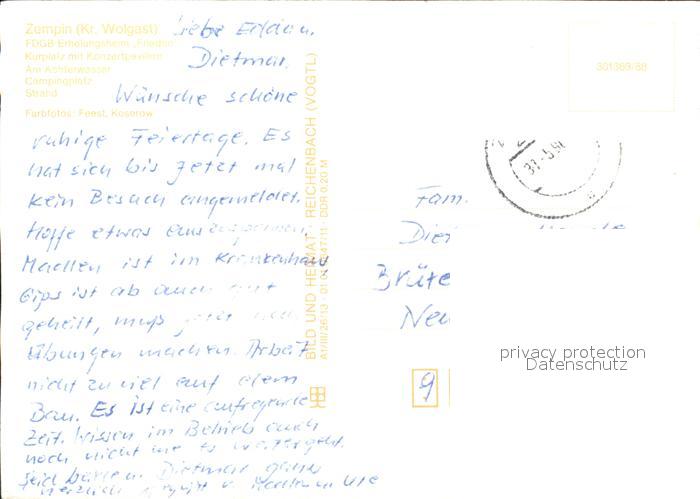 Zempin (Kr. Wolgast)
FDGB-Erholungsheim „Frieden“
Kurplatz mit Konzertpavillon
Am Achterwasser
Campingplatz
Strand
Farbfotos: Feest, Koserow
Liebe
Dietmar.
Wünsche schöne
ruhige Feiertage. Es
hat sich bis jetzt mal
kein Besuch angemeldet.
Hoffe etwas
ist im Krankenhaus
Gips ist ab auch gut
geheilt, muß jetzt noch
Übungen machen. Arbeit
nicht zu viel auf dem
Bau. Es ist eine aufregende
Zeit. Wissen im Betrieb auch
noch nicht wie es weitergeht.
Dietmar
herzlich
BILD UND HEIMAT · REICHENBACH (VOGTL)
DDR 0,20 M
301389/88
Fam.
Die
Brüte
Neu
9
privacy protection
Datenschutz